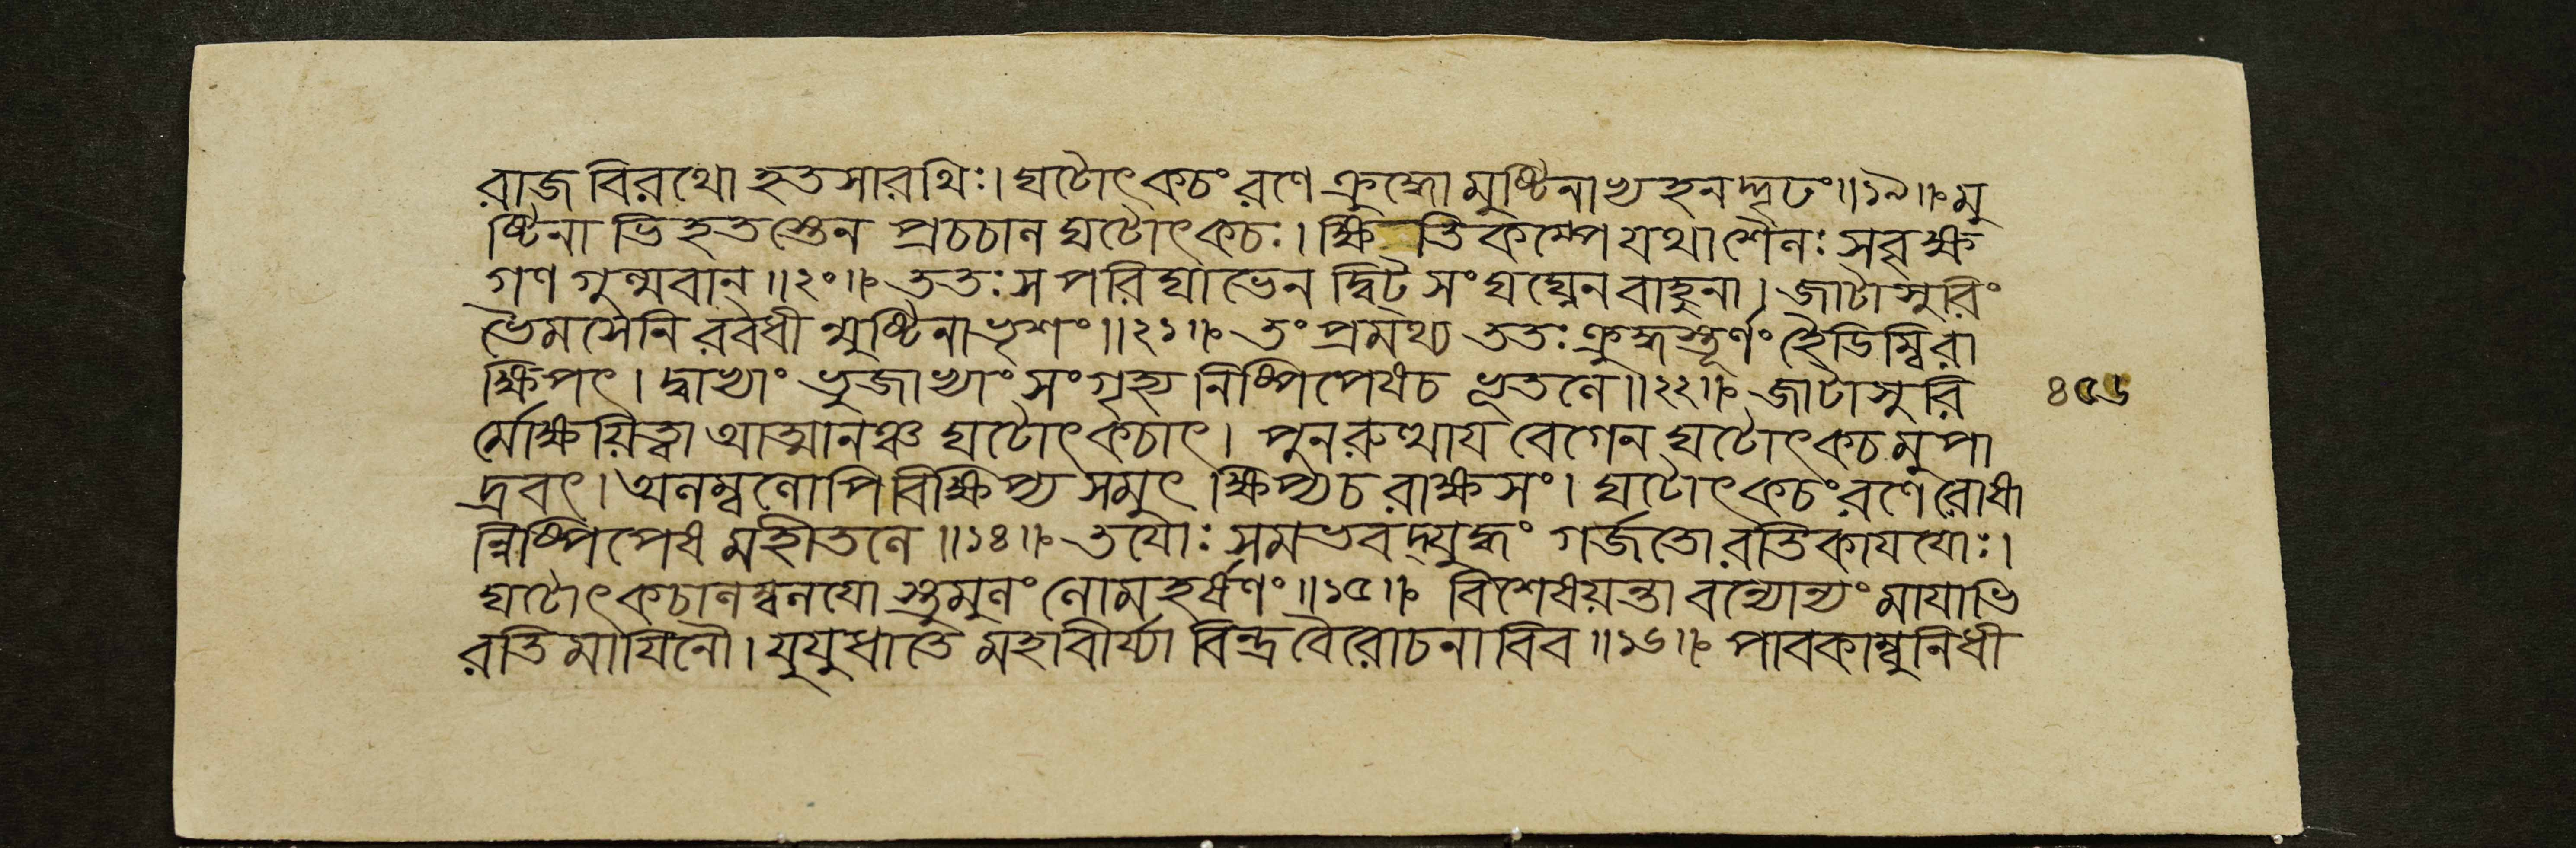 রাজ বিরথো হতসারথিঃ। ঘটোৎকচং রণে ক্রুদ্ধো মুষ্টিনাভ্যহনদ্দৃঢং॥১৯॥ মু
ষ্টিনা ভিহতস্তেন প্রচচাল ঘটোৎকচঃ। ক্ষিতিকম্পে যথা শৈলঃ সবৃক্ষ
গণ গুল্মবান্॥২০॥ ততঃ স পরিঘাভেন দ্বিট্সংঘঘ্নেন বাহুনা। জাটাসুরিং
ভৈমসেনি রবধী ন্মুষ্টিনা ভৃশং॥২১॥ তং প্রমথ্য ততঃ ক্রুদ্ধস্তূর্ণং হৈডিম্বিরা
ক্ষিপৎ। দ্বাভ্যাং ভুজাভ্যাং সংগৃহ্য নিষ্পিপেষ চ ভূতলে॥২২॥ জাটাসুরি
র্মোক্ষয়িত্বা আত্মানঞ্চ ঘটোৎকচাৎ। পুনরুত্থায বেগেন ঘটোৎকচমুপা
দ্রবৎ। অলম্বলোপি বিক্ষিপ্য সমুৎক্ষিপ্য চ রাক্ষসং। ঘটোৎকচং রণে রোষা
ন্নিষ্পিপেষ মহীতলে॥১৪॥ তযোঃ সমভবদ্যুদ্ধং গর্জতোরতিকাযযোঃ।
ঘটোৎকচালম্বলযো স্তুমুলং লোমহর্ষণং॥১৫॥ বিশেষয়ন্তাবন্যোন্যং মাযাভি
রতি মাযিনৌ। যুযুধাতে মহাবীর্য্যা বিন্দ্রবৈরোচনাবিব॥১৬॥ পাবকাম্বুনিধী
৪৫৬